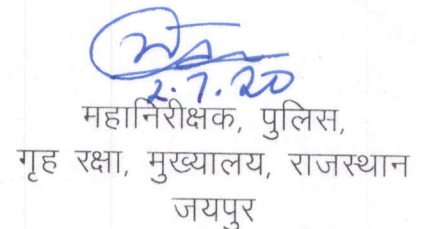 2.7.20
महानिरीक्षक, पुलिस,
गृह रक्षा, मुख्यालय, राजस्थान
जयपुर